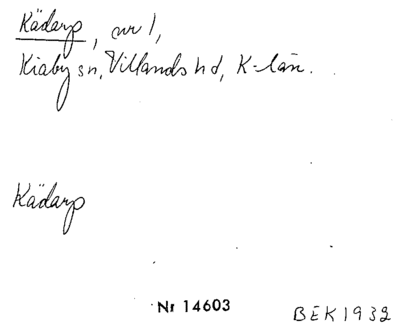 Kädarp, nr 1,
Kiaby sn, Villands hd, K-län.
Kädarp
Nr 14603
BEK1932